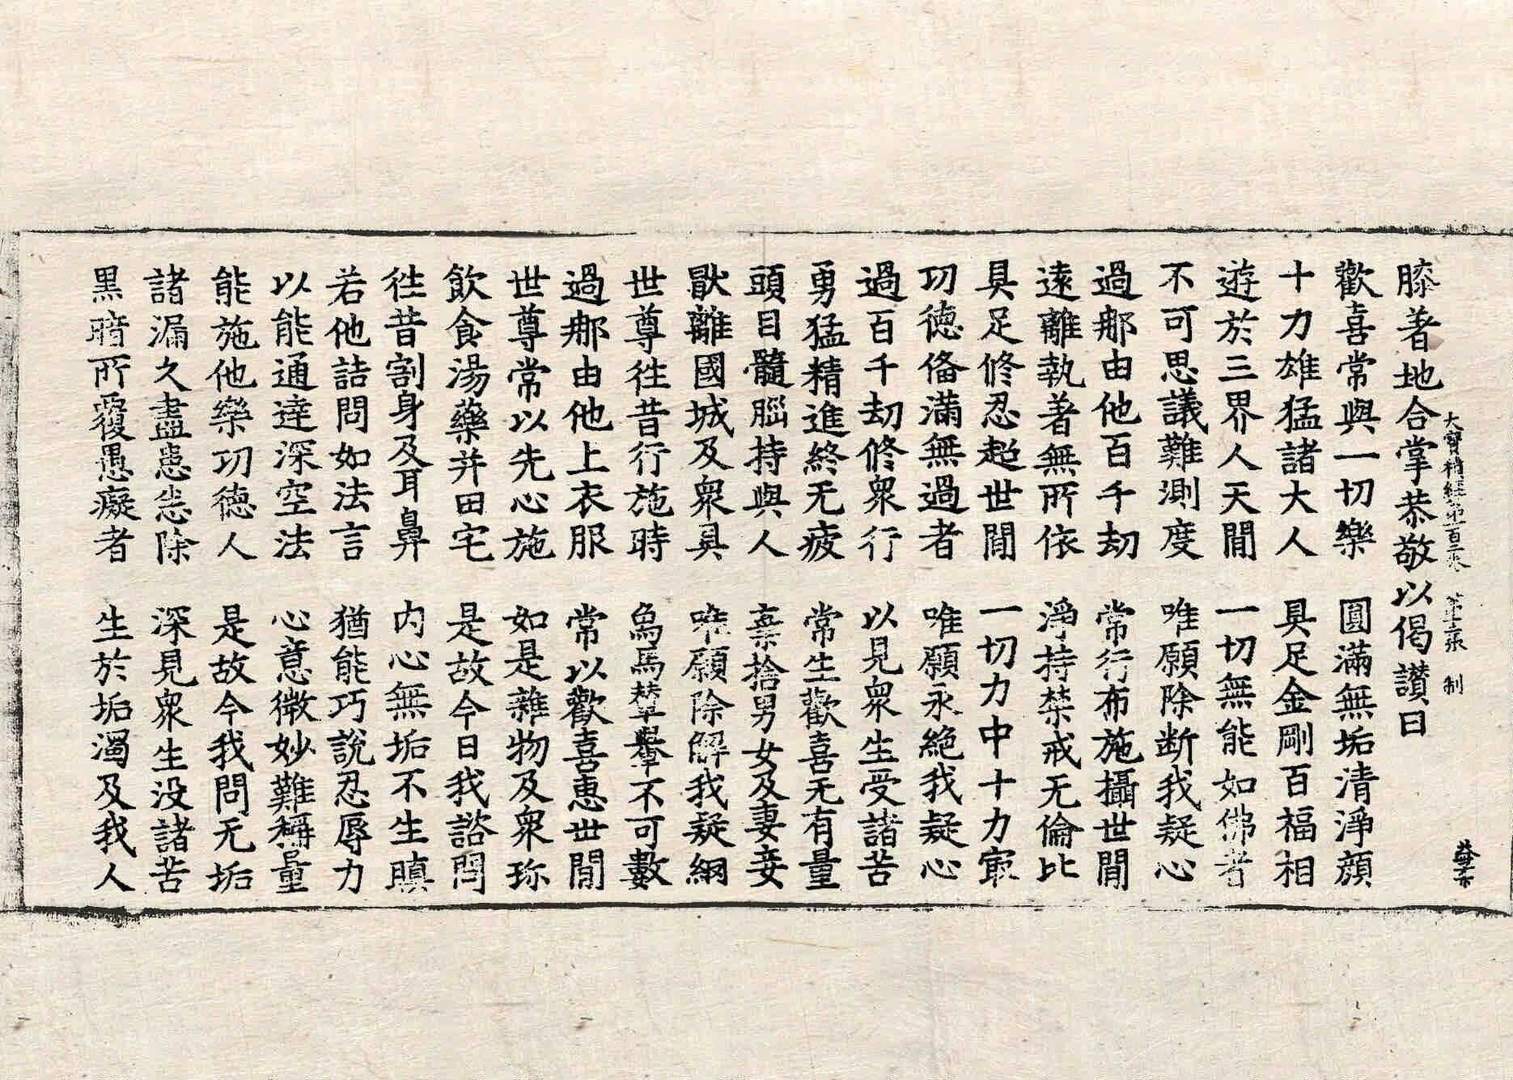 膝著地合掌恭敬以偈讃曰
大寶積經第百二 制
歡喜常與一切樂 圓滿無垢清淨顔
十力雄猛諸大人 具足金剛百福相
遊於三界人天閒 一切無能如佛者
不可思議難測度 唯願除断我疑心
過那由他百千劫 常行布施攝世閒
遠離執著無所依 淨持禁戒无倫比
具足修忍超世閒 一切力中十力㝡
功德俻滿無過者 唯願永絶我疑心
過百千劫修衆行 以見衆生受諸苦
勇猛精進終无疲 常生歡喜无有量
頭目髓腦持與人 棄捨男女及妻妾
猒離國城及衆具 唯願除解我疑網
世尊徃昔行施時 爲馬輦轝不可數
過那由他上衣服 常以歡喜惠世閒
世尊常以先心施 如是雜物及衆珎
飲食湯藥并田宅 是故今日我諮問
徃昔割身及耳鼻 內心無垢不生瞋
若他詰問如法言 猶能巧說忍辱力
以能通達深空法 心意微妙難稱量
能施他樂功德人 是故今我問无垢
諸漏久盡恚恙除 深見衆生没諸苦
黒暗所覆愚癡者 生於垢濁及我人